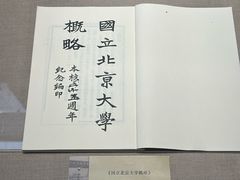 國立北京大學
概略
本校二十五週年
紀念編印
《国立北京大学概略》